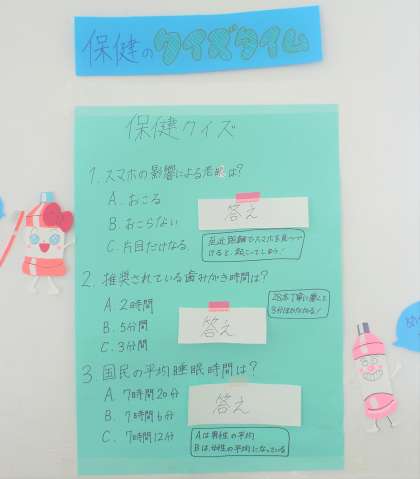 保健のクイズタイム
保健クイズ
1. スマホの影響による老眼は?
A. おこる
B. おこらない
C. 片目だけなる
答え
至近距離でスマホを見つづ
けると、起こってしまう!
2. 推奨されている歯みがき時間は?
A. 2時間
B. 5分間
C. 3分間
答え
28本丁寧に磨くと
3分はかかる!
3. 国民の平均睡眠時間は?
A. 7時間20分
B. 7時間6分
C. 7時間12分
答え
Aは男性の平均
Bは女性の平均になっている